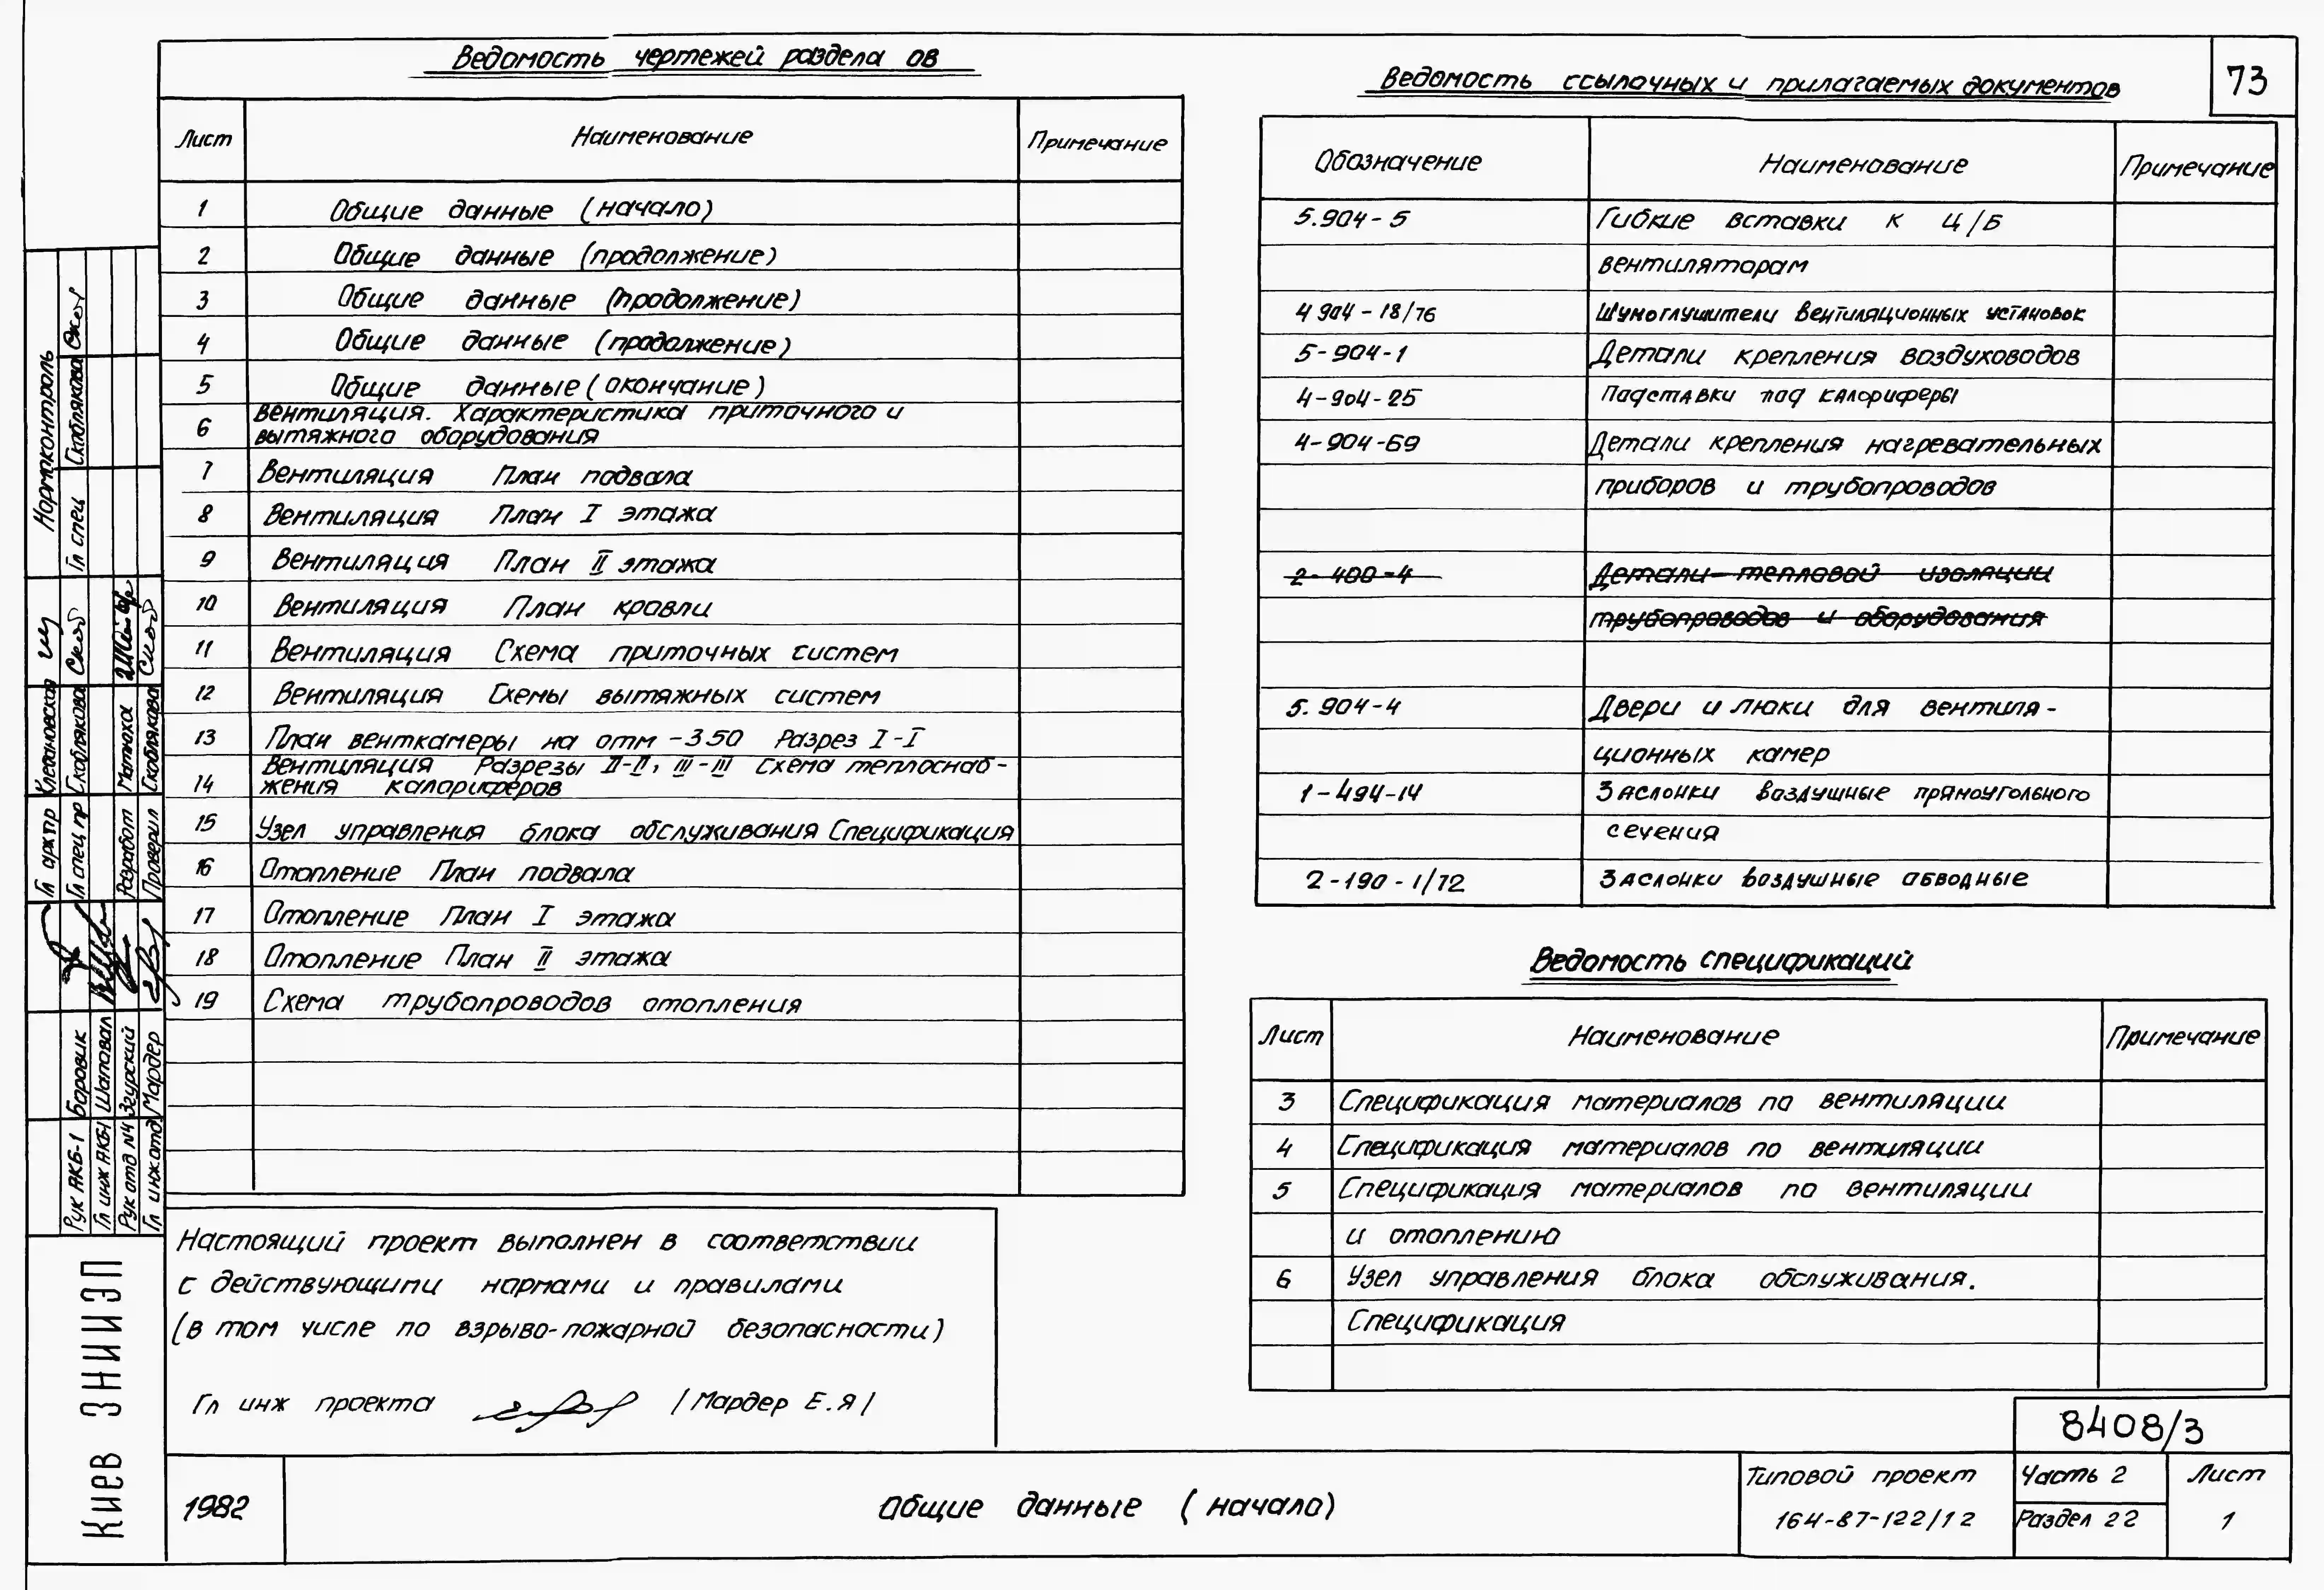 73
Ведомость чертежей раздела ОВ
Лист Наименование Примечание
1 Общие данные (начало)
2 Общие данные (продолжение)
3 Общие данные (продолжение)
4 Общие данные (продолжение)
5 Общие данные (окончание)
6 Вентиляция. Характеристика приточного и
вытяжного оборудования
7 Вентиляция План подвала
8 Вентиляция План I этажа
9 Вентиляция План II этажа
10 Вентиляция План кровли
11 Вентиляция Схема приточных систем
12 Вентиляция Схемы вытяжных систем
13 План венткамеры на отм -3.50 Разрез I-I
14 Вентиляция Разрезы II-II, III-III Схема теплоснаб-
жения калориферов
15 Узел управления блока обслуживания Спецификация
16 Отопление План подвала
17 Отопление План I этажа
18 Отопление План II этажа
19 Схема трубопроводов отопления
Настоящий проект выполнен в соответствии
с действующими нормами и правилами
(в том числе по взрыво-пожарной безопасности)
Гл инж проекта /Мардер Е.Я/
Ведомость ссылочных и прилагаемых документов
Обозначение Наименование Примечание
5.904-5 Гибкие вставки к Ц/Б
вентиляторам
4 904-18/76 Шумоглушители вентиляционных установок
5-904-1 Детали крепления воздуховодов
4-904-25 Подставки под калориферы
4-904-69 Детали крепления нагревательных
приборов и трубопроводов
2-400-4 Детали тепловой изоляции
трубопроводов и оборудования
5.904-4 Двери и люки для вентиля-
ционных камер
1-494-14 Заслонки воздушные прямоугольного
сечения
2-190-1/72 Заслонки воздушные обводные
Ведомость спецификаций
Лист Наименование Примечание
3 Спецификация материалов по вентиляции
4 Спецификация материалов по вентиляции
5 Спецификация материалов по вентиляции
и отоплению
6 Узел управления блока обслуживания.
Спецификация
8408/3
1982
Общие данные (начало)
Типовой проект
164-87-122/12
Часть 2
Раздел 22
Лист
1
Киев ЗНИИЭП
Нормоконтроль
Гл спец Скоблякова
Гл арх пр Клебановская
Гл спец пр Скоблякова
Разработ Матюха
Проверил Скоблякова
Рук АКБ-1 Боровик
Гл инж АКБ-1 Шаповал
Рук отд №4 Згурский
Гл инж отд Мардер